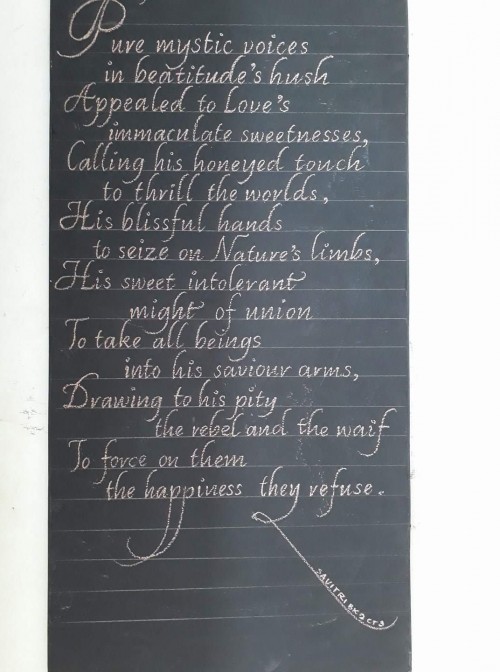 Pure mystic voices
in beatitude's hush
Appealed to Love's
immaculate sweetnesses,
Calling his honeyed touch
to thrill the worlds,
His blissful hands
to seize on Nature's limbs,
His sweet intolerant
might of union
To take all beings
into his saviour arms,
Drawing to his pity
the rebel and the waif
To force on them
the happiness they refuse.
SAVITRI BK2 CT3